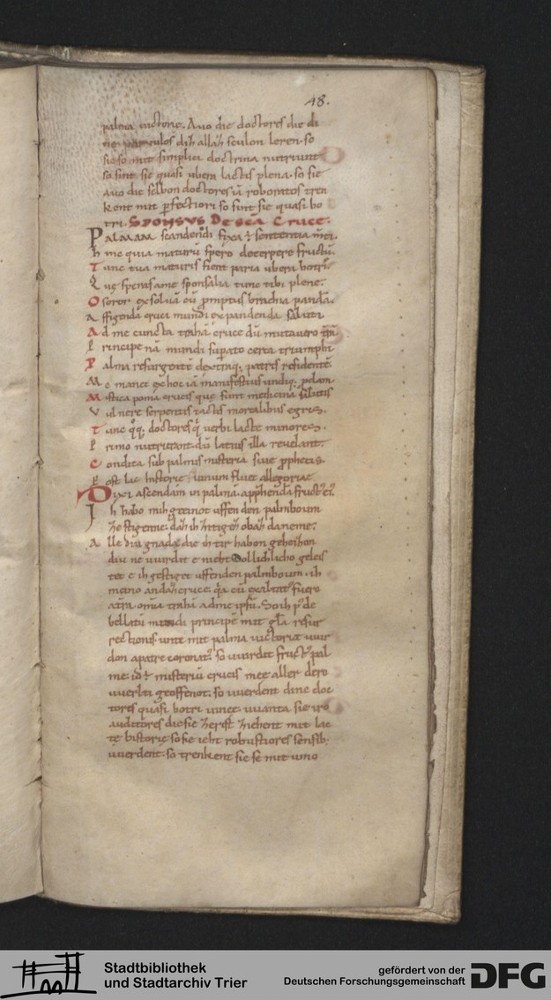 48.
palma victorie. Auo die doctores die di
ne paruulos dih allan sculon leren. so
sie so mit simplici doctrina nutriunt
so sint sie quasi ubera lactis plena. so sie
auo die selbon doctores iā roboratos tren
kent mit pfectiori so sint sie quasi bo
tri. SPONSVS De scā Cruce.
PALMAM scandendi fixa ē sententia
me quia maturū spero decerpere fructū.
Tunc tua maturis fient paria ubera botris
Que spem sponsalia tunc tibi plene.
O soror exsoluā cū pmptus brachia pandā.
affigenda cruci mundi expandenda saluti
Ad me cuncta trahā cruce dū mutauero
Principe nā mundi supato certa triumphi
Palma resurgentē patris residentē
Mo mance ex hoc iā manifestus undiq. pelam.
Mistica poma crucis que sunt medicina salutis
Vulnere serpentis tactis mortalibus egris.
Tunc qq. doctores verbi lacte minores.
Primo nutritant. dū latius illa reuelant.
Condita sub palmis misteria siue pphetis.
Post lac historie uinum fluit allegorie
Dixi ascendam in palmā. apphendā fruct eī
Ih habo mih geeinot uffen den palmboum
ze stigenne. dah ih sin obaz da neme.
alle diu gnada die ih tir habon geheizon
diu ne vuirdet e nieht uollidlicho geles
tet e ih gestiget uffenden palmboum. ih
meino andaz cruce. qa cū exaltat fuero
a trā. omīa trahā ad me ipsū. So ih p de
bellatū mundi principē mit glā resur
rectionis unte mit palma victorie vuir
don a patre coronat. so vuirdet fruct pal
me. id ē misteriū crucis mee aller dero
vuerlti geoffenot. so vuerdent dine doc
tores quasi botri vinee. vuanta sie iro
auditores die sie zerist zihent mit lac
te historie so sie ieht robustiores sensib;
vuerdent. so trenkent sie se mit uino
Stadtbibliothek
und Stadtarchiv Trier
gefördert von der
Deutschen Forschungsgemeinschaft
DFG